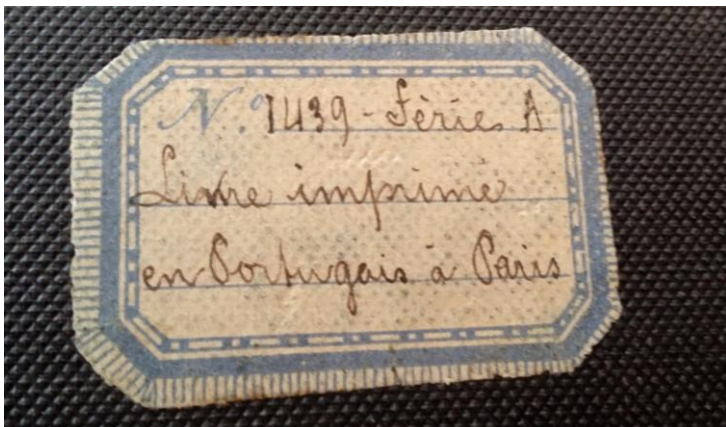 N.º 1439 - Série A
Livre imprimé
en Portugais à Paris